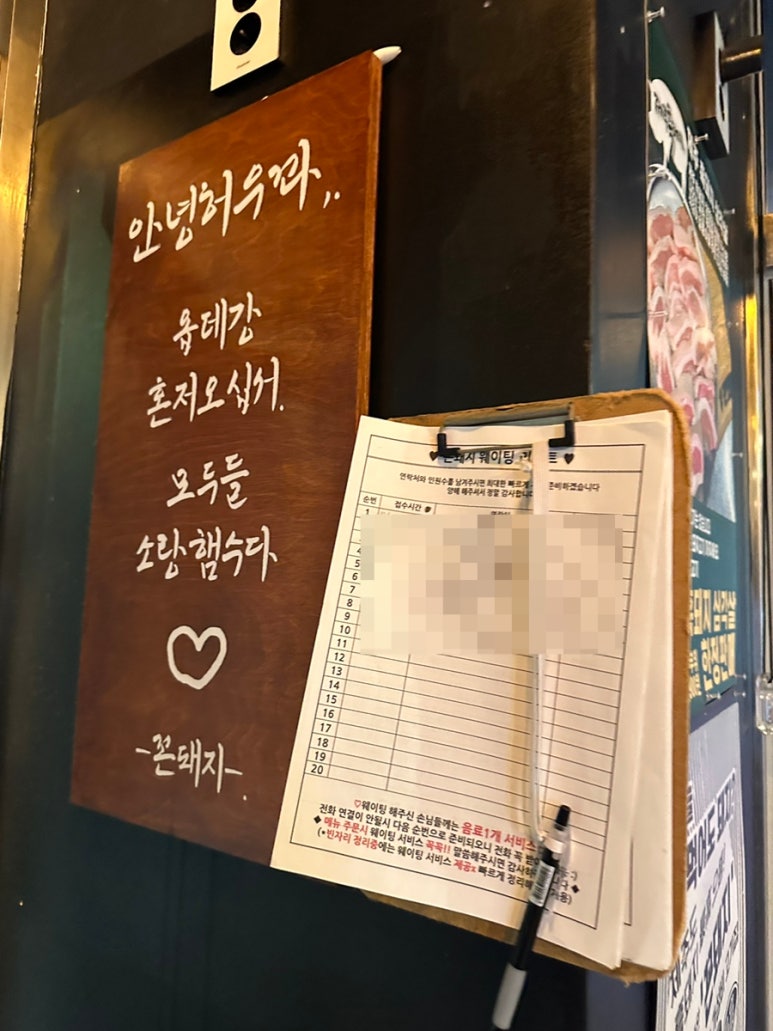 안녕허우꽈,.
욥데강
혼저오십서.
모두들
소랑햄수다
-꼰돼지-
♥ 꼰돼지 웨이팅 ♥
연락처와 인원수를 남겨주시면 최대한 빠르게 준비하겠습니다
양해 해주셔서 정말 감사합니다
순번 접수시간
1
4
5
6
7
8
9
10
11
12
13
14
15
16
17
18
19
20
♡웨이팅 해주신 손님들께는 음료1개 서비스
전화 연결이 안될시 다음 순번으로 준비되오니 전화 꼭
◆ 메뉴 주문시 웨이팅 서비스 꼭꼭!! 말씀해주시면 감사하
(*빈자리 정리중에는 웨이팅 서비스 제공x 빠르게 정리해
돼지 삼각살
한정판매